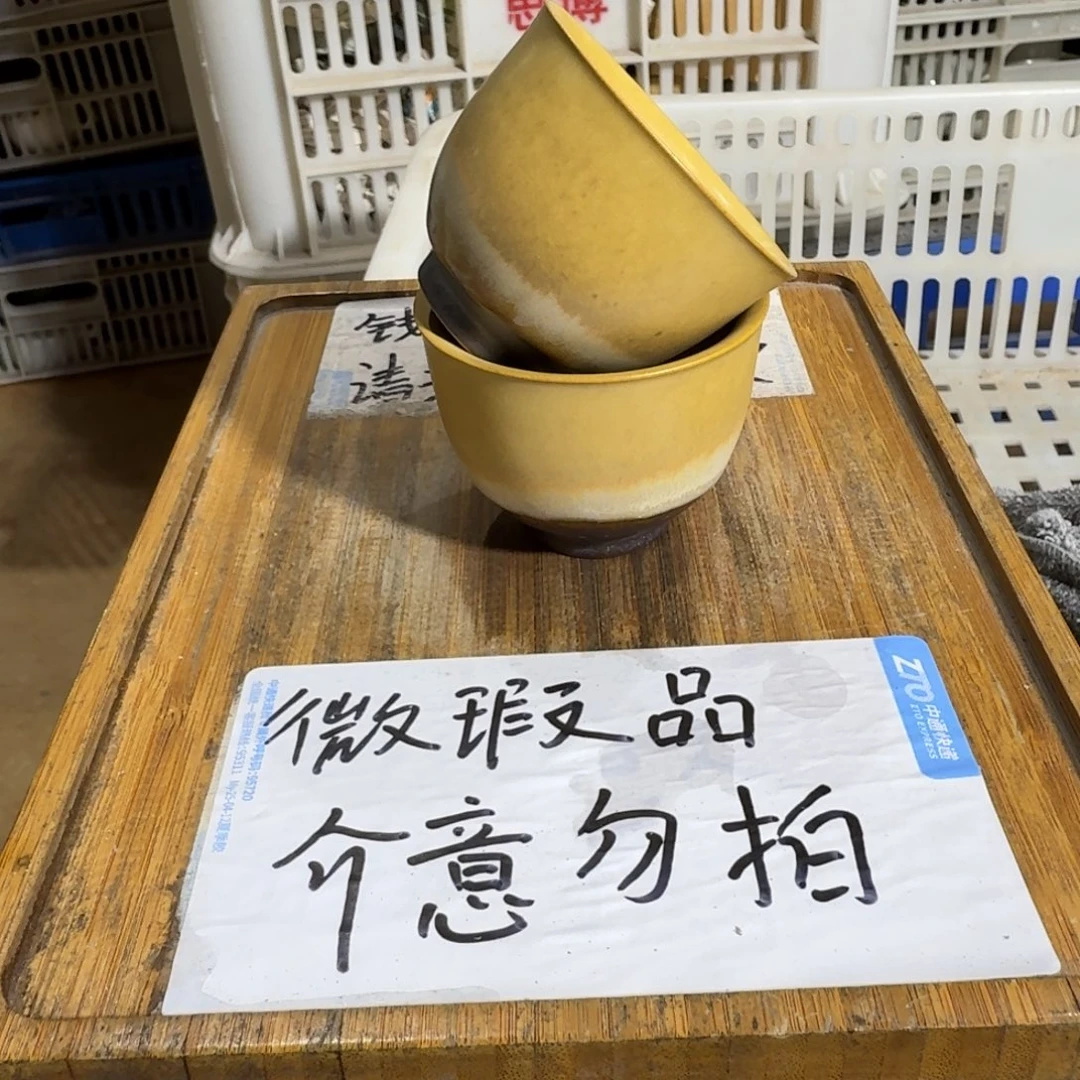 思博
钱
请
微瑕品
介意勿拍
ZTO
中通快递
ZTO EXPRESS